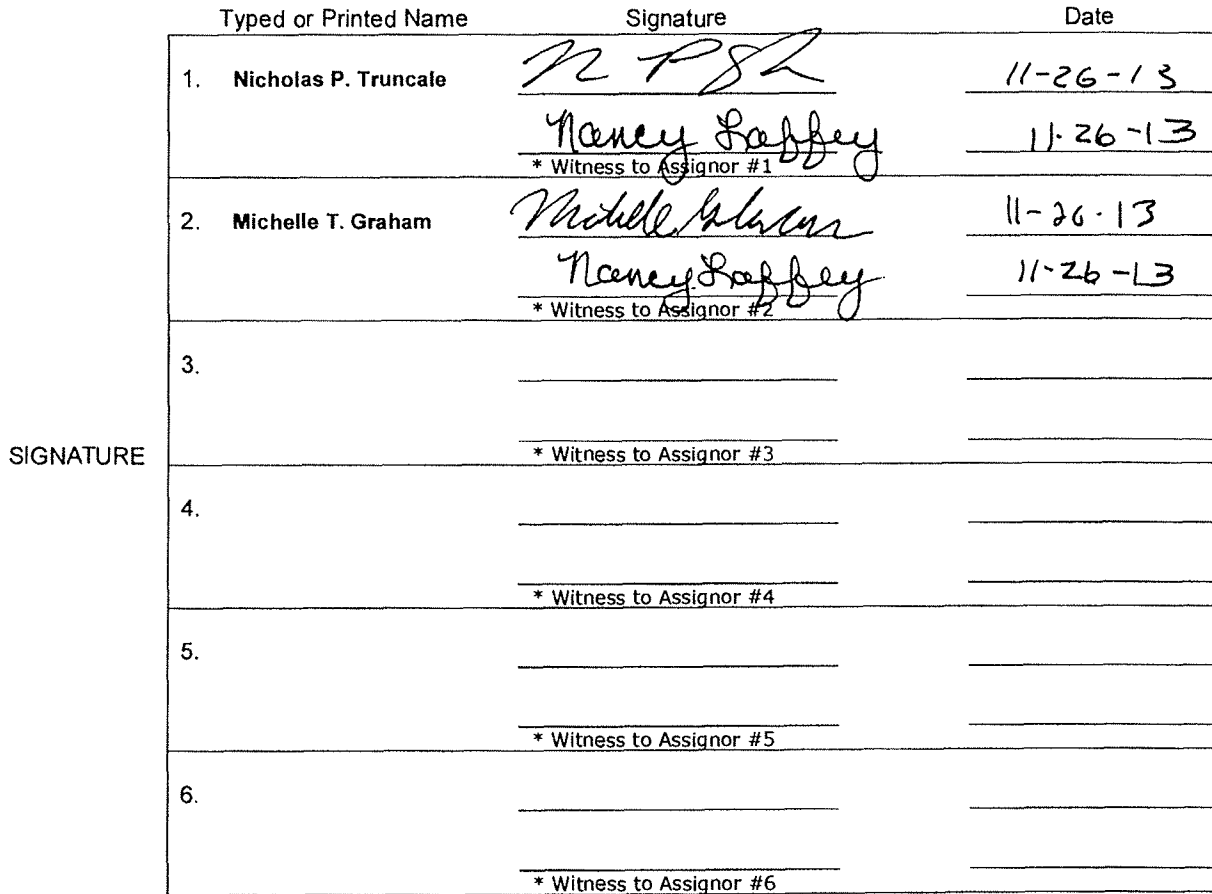 Typed or Printed Name Signature Date
1. Nicholas P. Truncale 11-26-13
Nancy Laffey 11-26-13
* Witness to Assignor #1
2. Michelle T. Graham Michelle Graham 11-26-13
Nancy Laffey 11-26-13
* Witness to Assignor #2
3.
* Witness to Assignor #3
SIGNATURE
4.
* Witness to Assignor #4
5.
* Witness to Assignor #5
6.
* Witness to Assignor #6